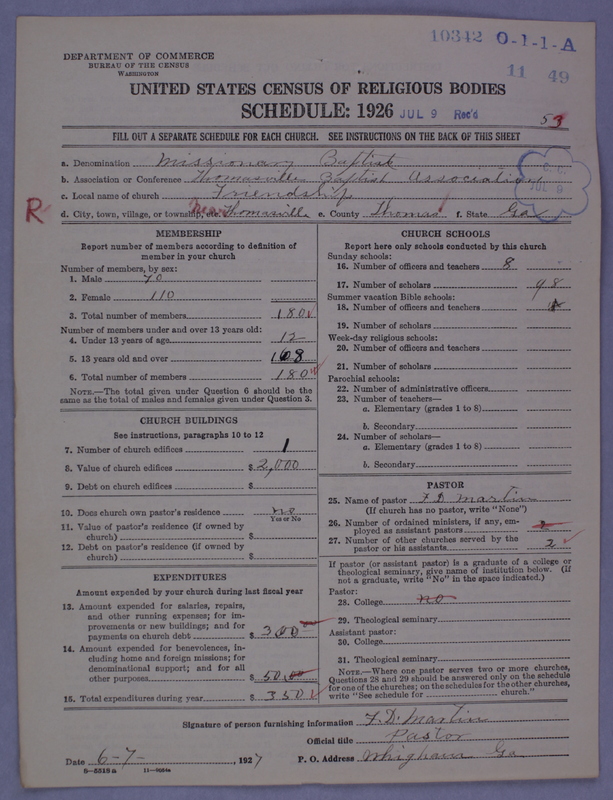 10342 O-1-1-A
11 49
DEPARTMENT OF COMMERCE
BUREAU OF THE CENSUS
WASHINGTON
UNITED STATES CENSUS OF RELIGIOUS BODIES
SCHEDULE: 1926 JUL 9 Rec'd
53
FILL OUT A SEPARATE SCHEDULE FOR EACH CHURCH. SEE INSTRUCTIONS ON THE BACK OF THIS SHEET
a. Denomination Missionary Baptist
b. Association or Conference Thomasville Baptist Association
c. Local name of church Friendship
JUL 9
R d. City, town, village, or township, etc. Near Thomasville e. County Thomas f. State Ga
MEMBERSHIP
Report number of members according to definition of
member in your church
Number of members, by sex:
1. Male 70
2. Female 110
3. Total number of members 180
Number of members under and over 13 years old:
4. Under 13 years of age 12
5. 13 years old and over 168
6. Total number of members 180
NOTE.—The total given under Question 6 should be the
same as the total of males and females given under Question 3.
CHURCH BUILDINGS
See instructions, paragraphs 10 to 12
7. Number of church edifices 1
8. Value of church edifices $ 2,000
9. Debt on church edifices $
10. Does church own pastor's residence no
Yes or No
11. Value of pastor's residence (if owned by
church) $
12. Debt on pastor's residence (if owned by
church) $
EXPENDITURES
Amount expended by your church during last fiscal year
13. Amount expended for salaries, repairs,
and other running expenses; for im-
provements or new buildings; and for
payments on church debt $ 300
14. Amount expended for benevolences, in-
cluding home and foreign missions; for
denominational support; and for all
other purposes $ 50.00
15. Total expenditures during year $ 350
CHURCH SCHOOLS
Report here only schools conducted by this church
Sunday schools:
16. Number of officers and teachers 8
17. Number of scholars 98
Summer vacation Bible schools:
18. Number of officers and teachers
19. Number of scholars
Week-day religious schools:
20. Number of officers and teachers
21. Number of scholars
Parochial schools:
22. Number of administrative officers
23. Number of teachers—
a. Elementary (grades 1 to 8)
b. Secondary
24. Number of scholars—
a. Elementary (grades 1 to 8)
b. Secondary
PASTOR
25. Name of pastor F. D. Martin
(If church has no pastor, write "None")
26. Number of ordained ministers, if any, em-
ployed as assistant pastors 2
27. Number of other churches served by the
pastor or his assistants 2
If pastor (or assistant pastor) is a graduate of a college or
theological seminary, give name of institution below. (If
not a graduate, write "No" in the space indicated.)
Pastor:
28. College no
29. Theological seminary
Assistant pastor:
30. College
31. Theological seminary
NOTE.—Where one pastor serves two or more churches,
Questions 28 and 29 should be answered only on the schedule
for one of the churches; on the schedules for the other churches,
write "See schedule for church."
Signature of person furnishing information F. D. Martin
Official title Pastor
Date 6-7- , 1927 P. O. Address Whigham Ga